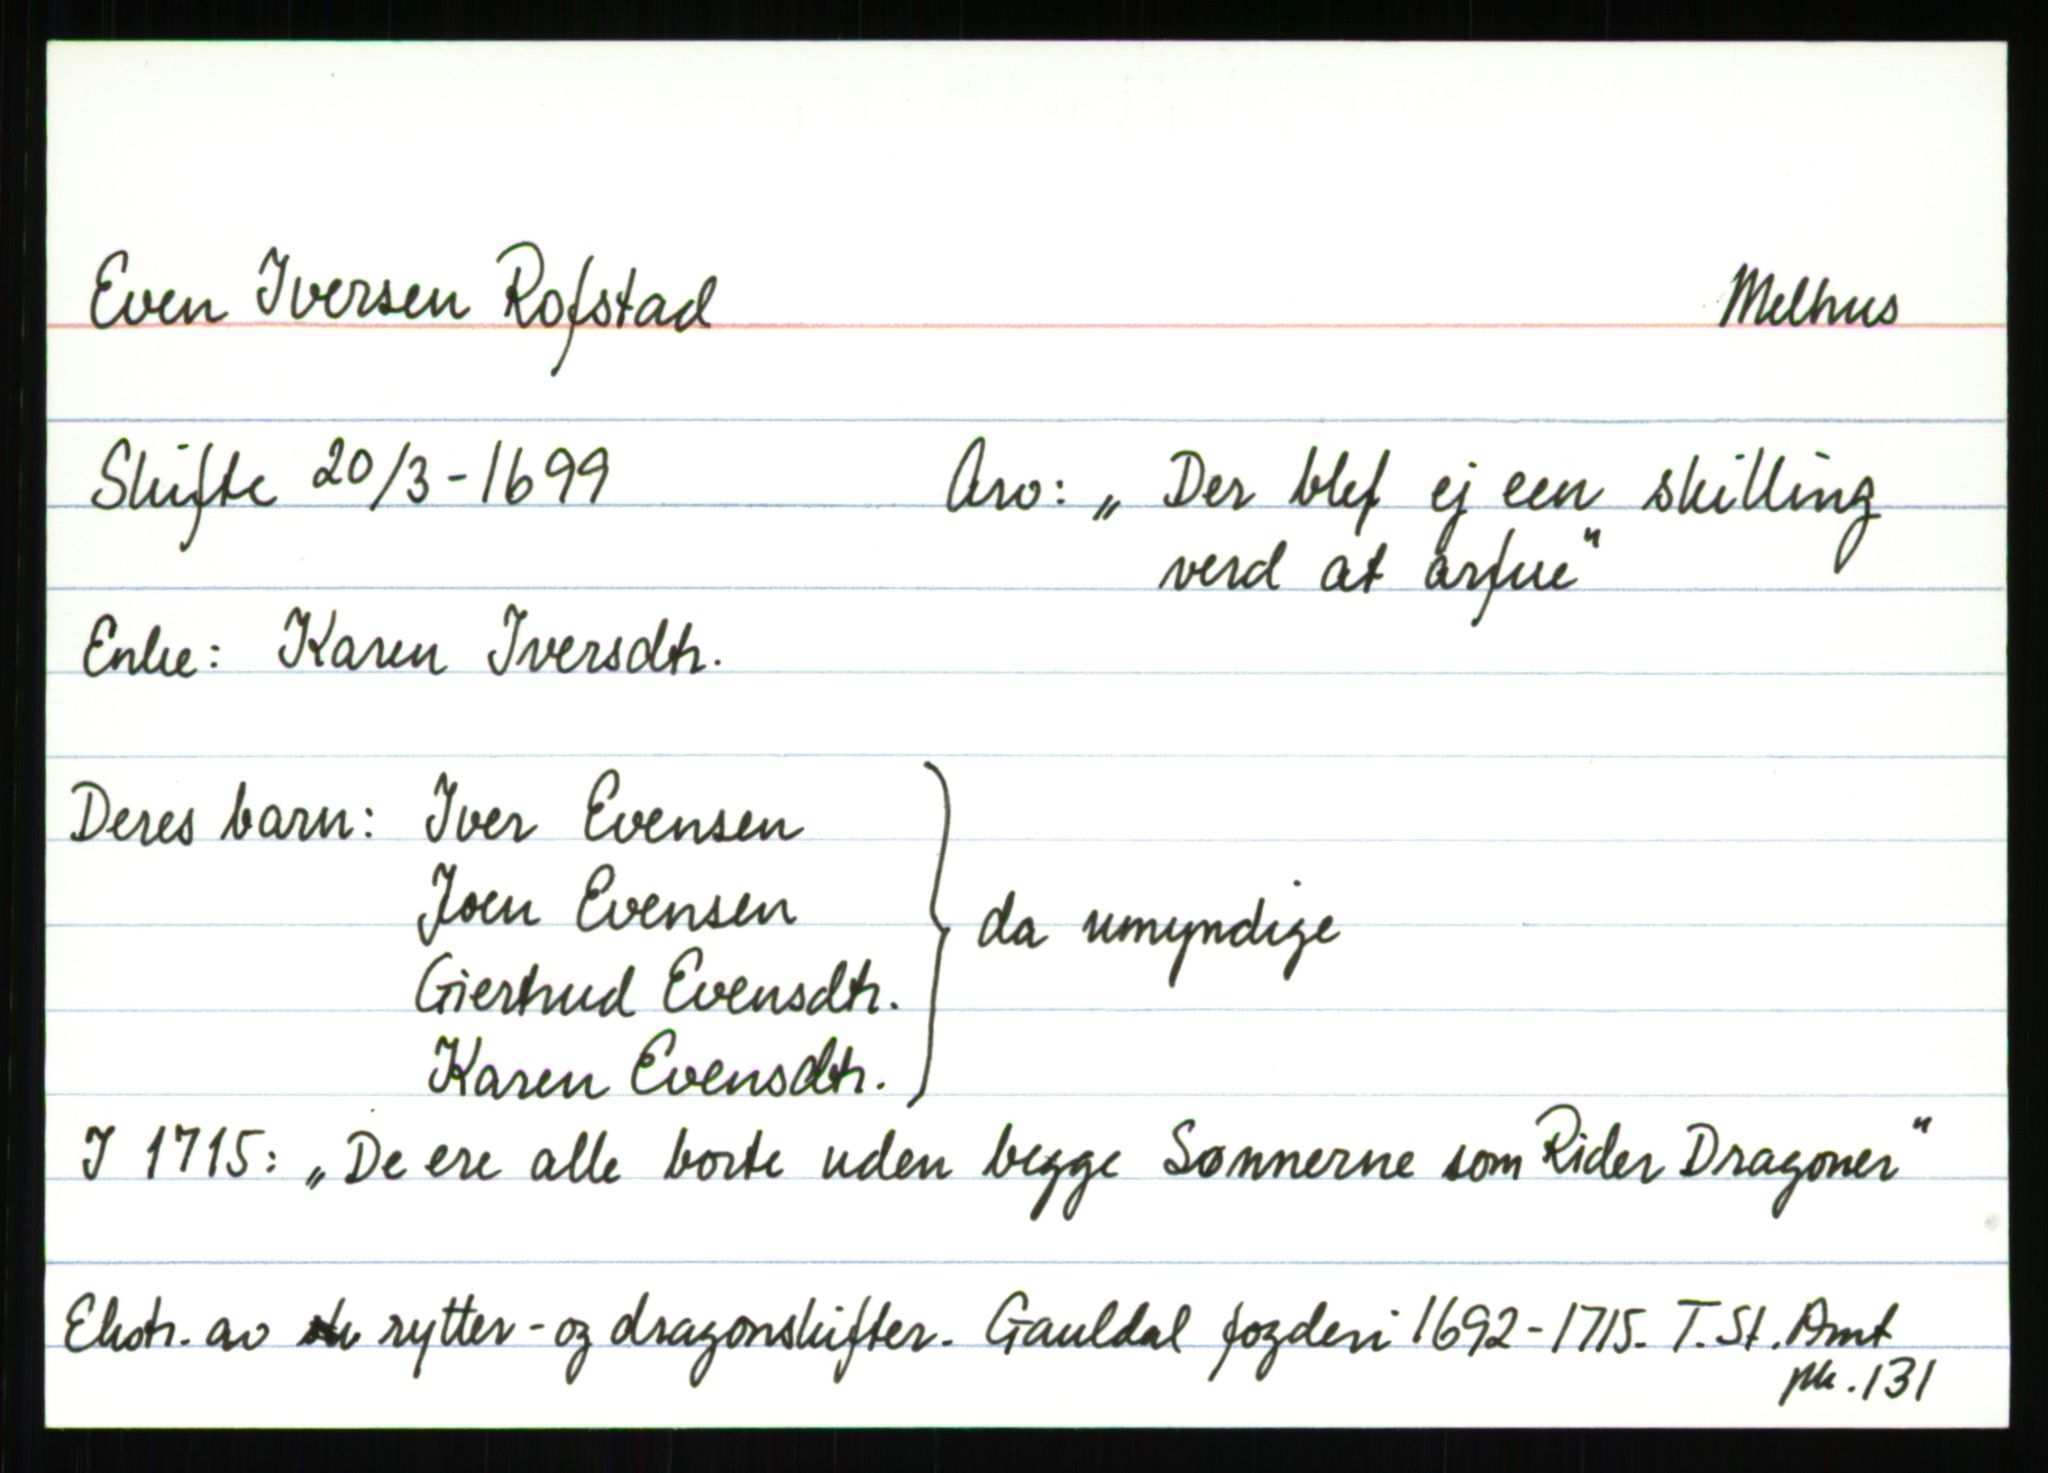 Even Iversen Rofstad Melhus
Skifte 20/3-1699 Arv: „ Der blef ej een skilling
verd at arfue"
Enke: Karen Iversdtr.
Deres barn: Iver Evensen
Joen Evensen
da umyndige
Giertrud Evensdtr.
Karen Evensdtr.
I 1715: „De ere alle borte uden begge Sønnerne som Rider Dragoner"
Ekstr. av rytter- og dragonskifter. Gauldal fogderi 1692-1715. T. St. Amt
pk. 131